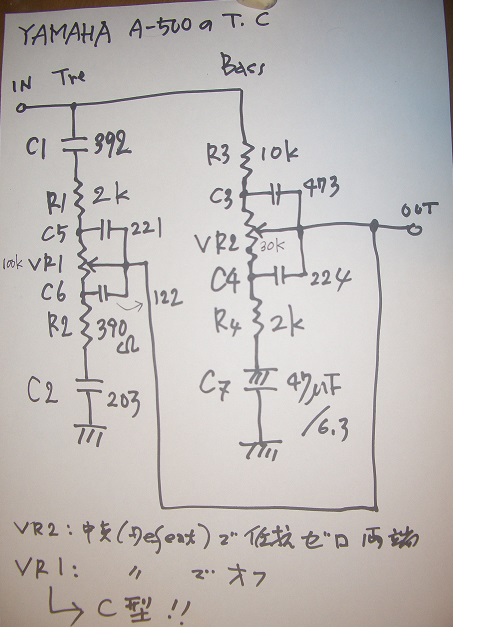 YAMAHA A-500の T.C
IN Tre Bass
C1 392
R3 10k
R1 2k
C3 473
C5 221
OUT
100k VR1
VR2 30k
C6 122
C4 224
R2 390Ω
R4 2k
C2 203
C7 47μF/6.3
VR2: 中点(Defeat)で 抵抗ゼロ 両端
VR1: 〃 で オフ
C型!!